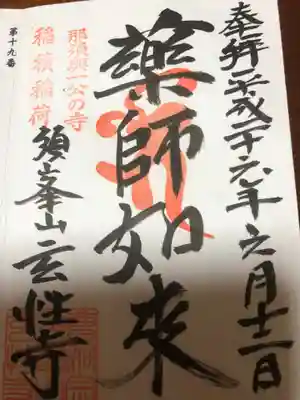 奉拝 平成二十六年六月十二日
藥師如來
那須與一公の寺
稲積稲荷
須峯山玄性寺
第十九番